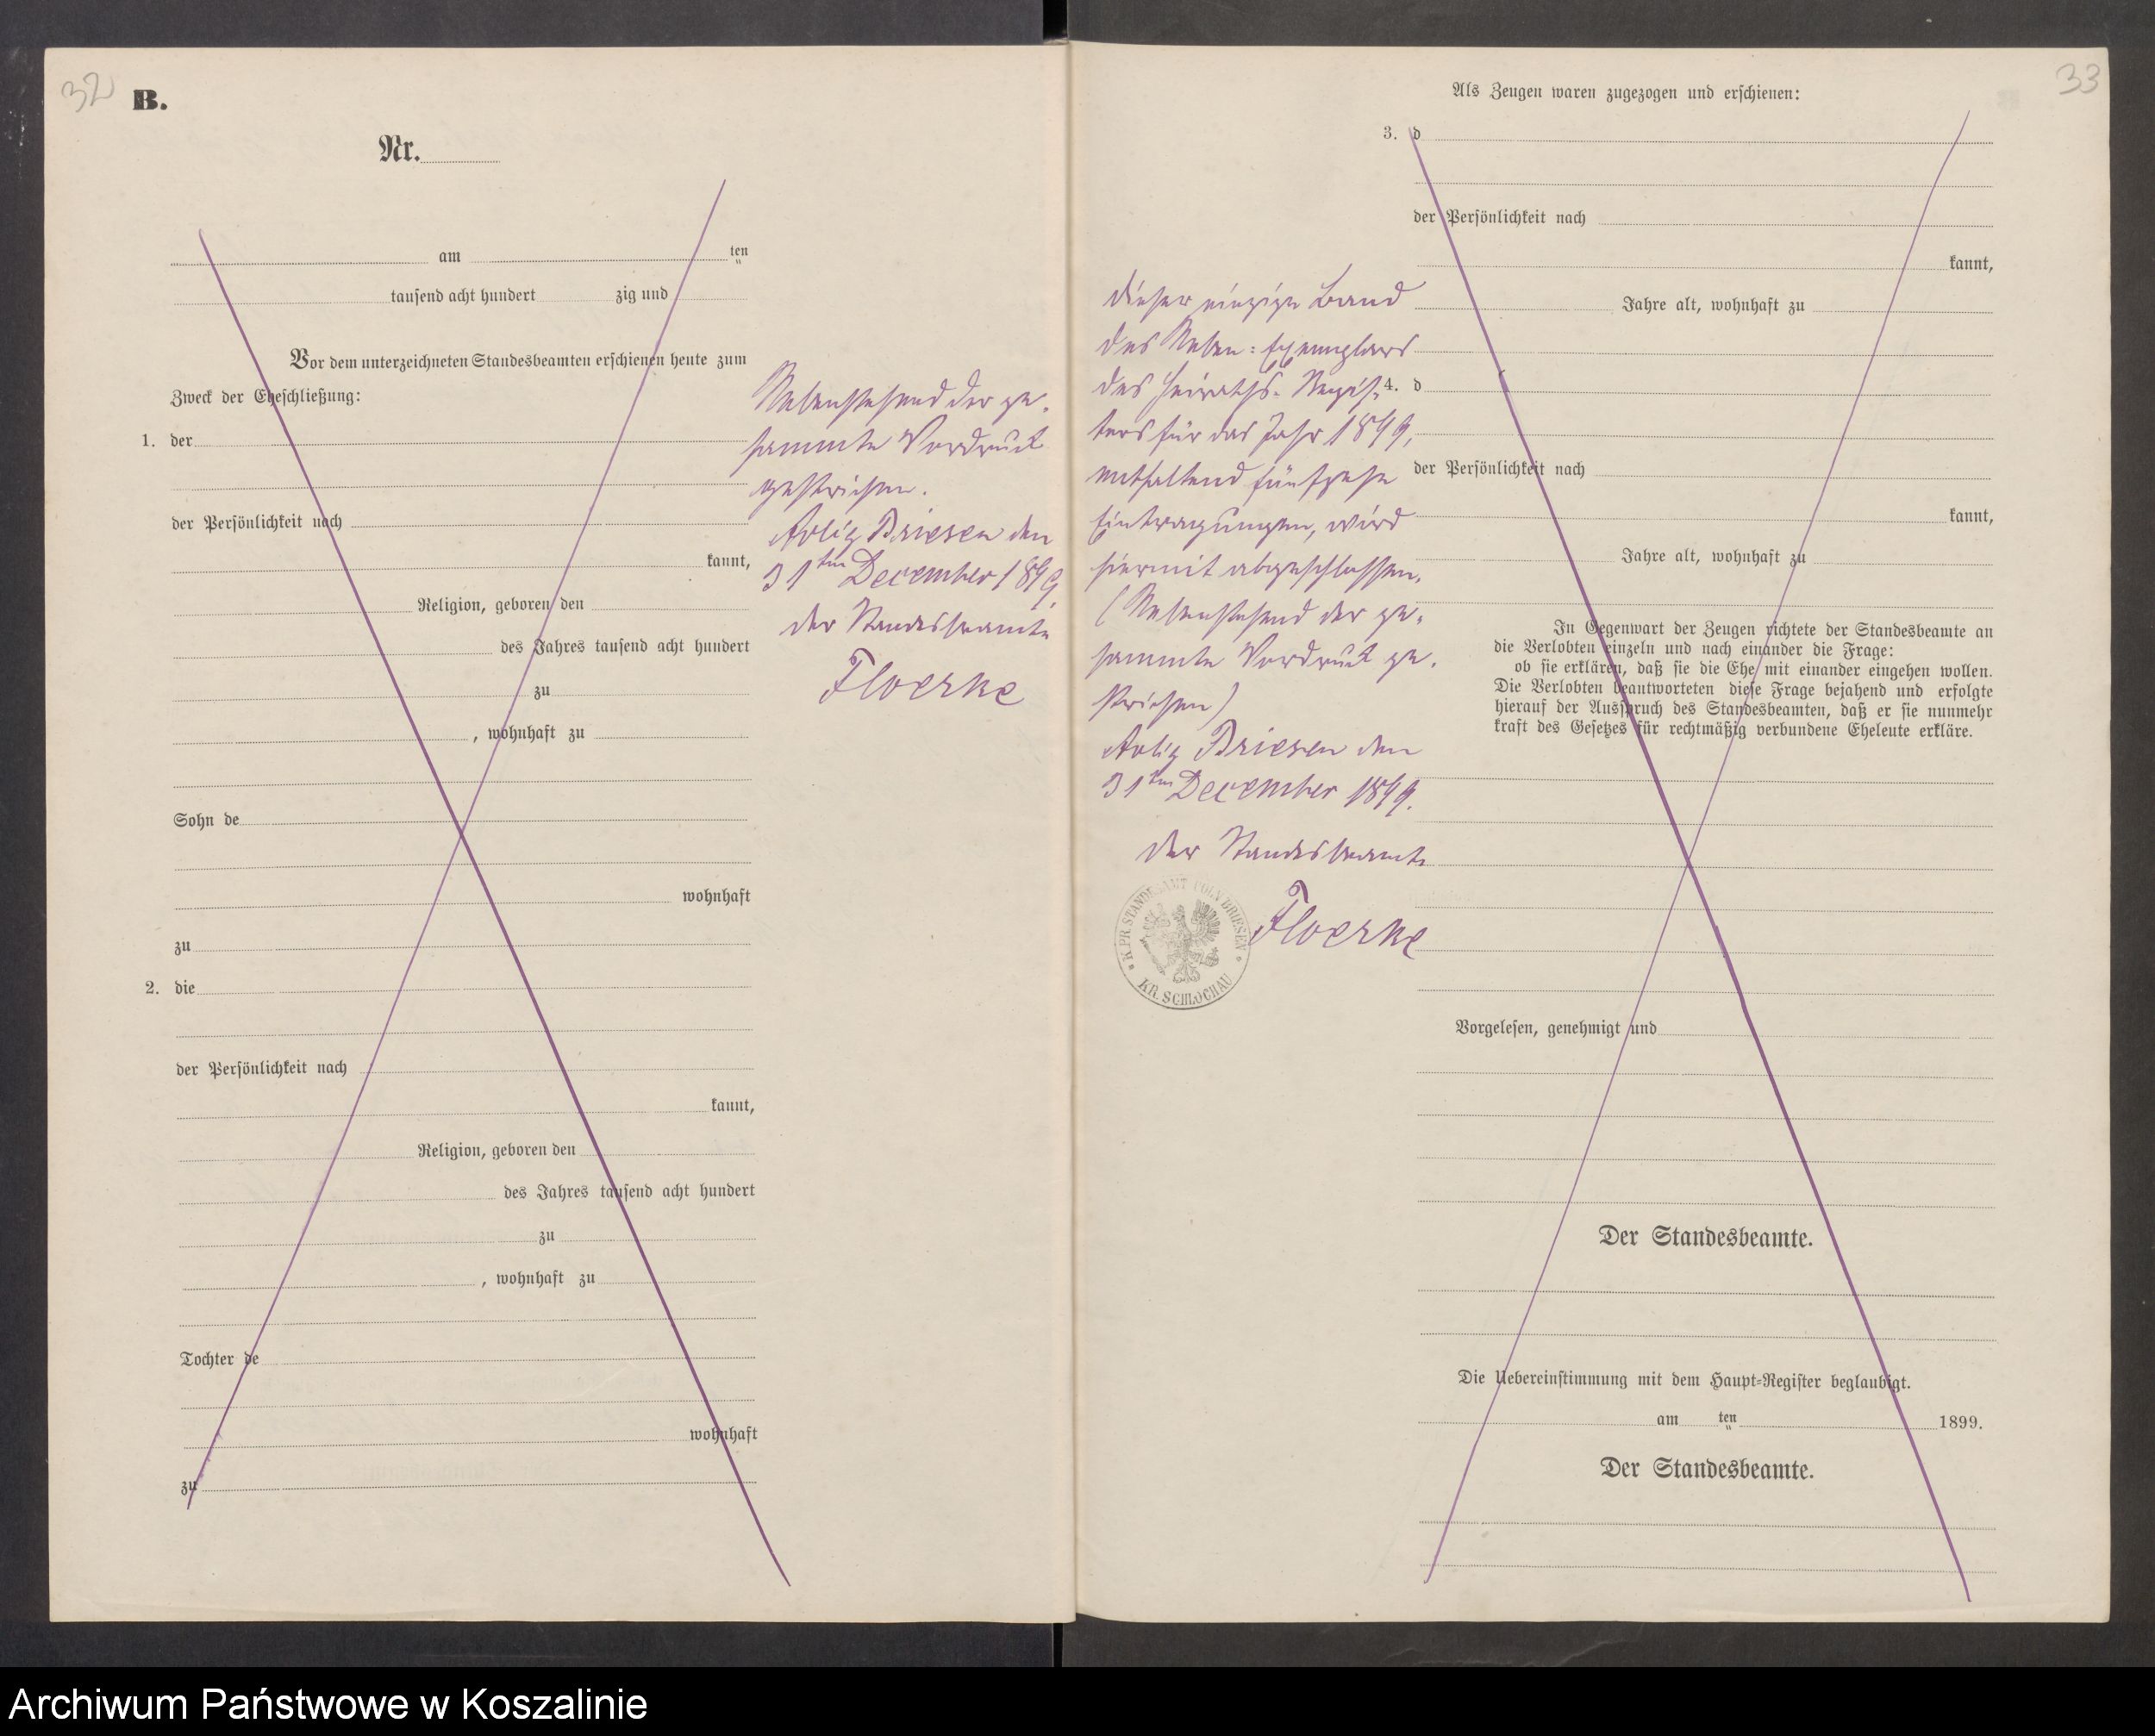 32
B.
Nr.
am ten
tausend acht hundert zig und
Vor dem unterzeichneten Standesbeamten erschienen heute zum
Zweck der Eheschließung:
1. der
der Persönlichkeit nach
kannt,
Religion, geboren den
des Jahres tausend acht hundert
zu
, wohnhaft zu
Sohn de
wohnhaft
zu
2. die
der Persönlichkeit nach
kannt,
Religion, geboren den
des Jahres tausend acht hundert
zu
, wohnhaft zu
Tochter de
wohnhaft
zu
Nebenstehend der ge-
sammte Vordruck
gestrichen.
Polng Briesen den
31ten December 1899.
der Standesbeamte
Floerke
33
Als Zeugen waren zugezogen und erschienen:
3. d
der Persönlichkeit nach
kannt,
Jahre alt, wohnhaft zu
4. d
der Persönlichkeit nach
kannt,
Jahre alt, wohnhaft zu
In Gegenwart der Zeugen richtete der Standesbeamte an
die Verlobten einzeln und nach einander die Frage:
ob sie erklären, daß sie die Ehe mit einander eingehen wollen.
Die Verlobten beantworteten diese Frage bejahend und erfolgte
hierauf der Ausspruch des Standesbeamten, daß er sie nunmehr
kraft des Gesetzes für rechtmäßig verbundene Eheleute erkläre.
Vorgelesen, genehmigt und
Der Standesbeamte.
Die Uebereinstimmung mit dem Haupt-Register beglaubigt.
am ten 1899.
Der Standesbeamte.
dieser einzige Band
des Neben-Exemplars
des Heiraths-Regis-
ters für das Jahr 1899,
enthaltend fünfzehn
Eintragungen, wird
hiermit abgeschlossen.
(Nebenstehend der ge-
sammte Vordruck ge-
strichen)
Briesen den
31ten December 1899.
der Standesbeamte
Floerke
K. PR. STANDESAMT POLN BRIESEN
KR. SCHLOCHAU
Archiwum Państwowe w Koszalinie